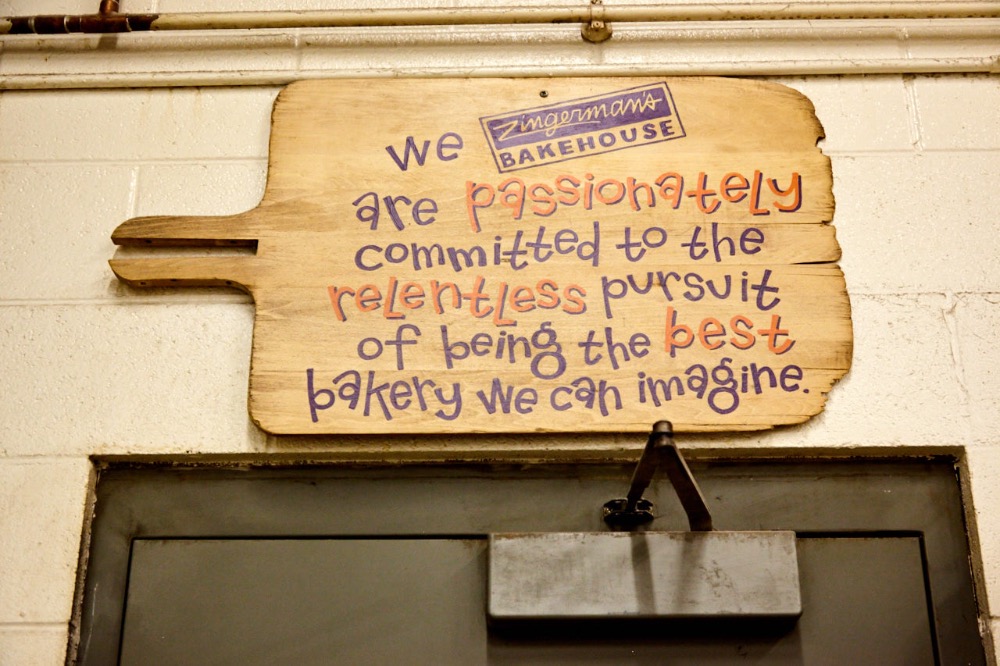 we Zingerman's
BAKEHOUSE
are passionately
committed to the
relentless pursuit
of being the best
bakery we can imagine.